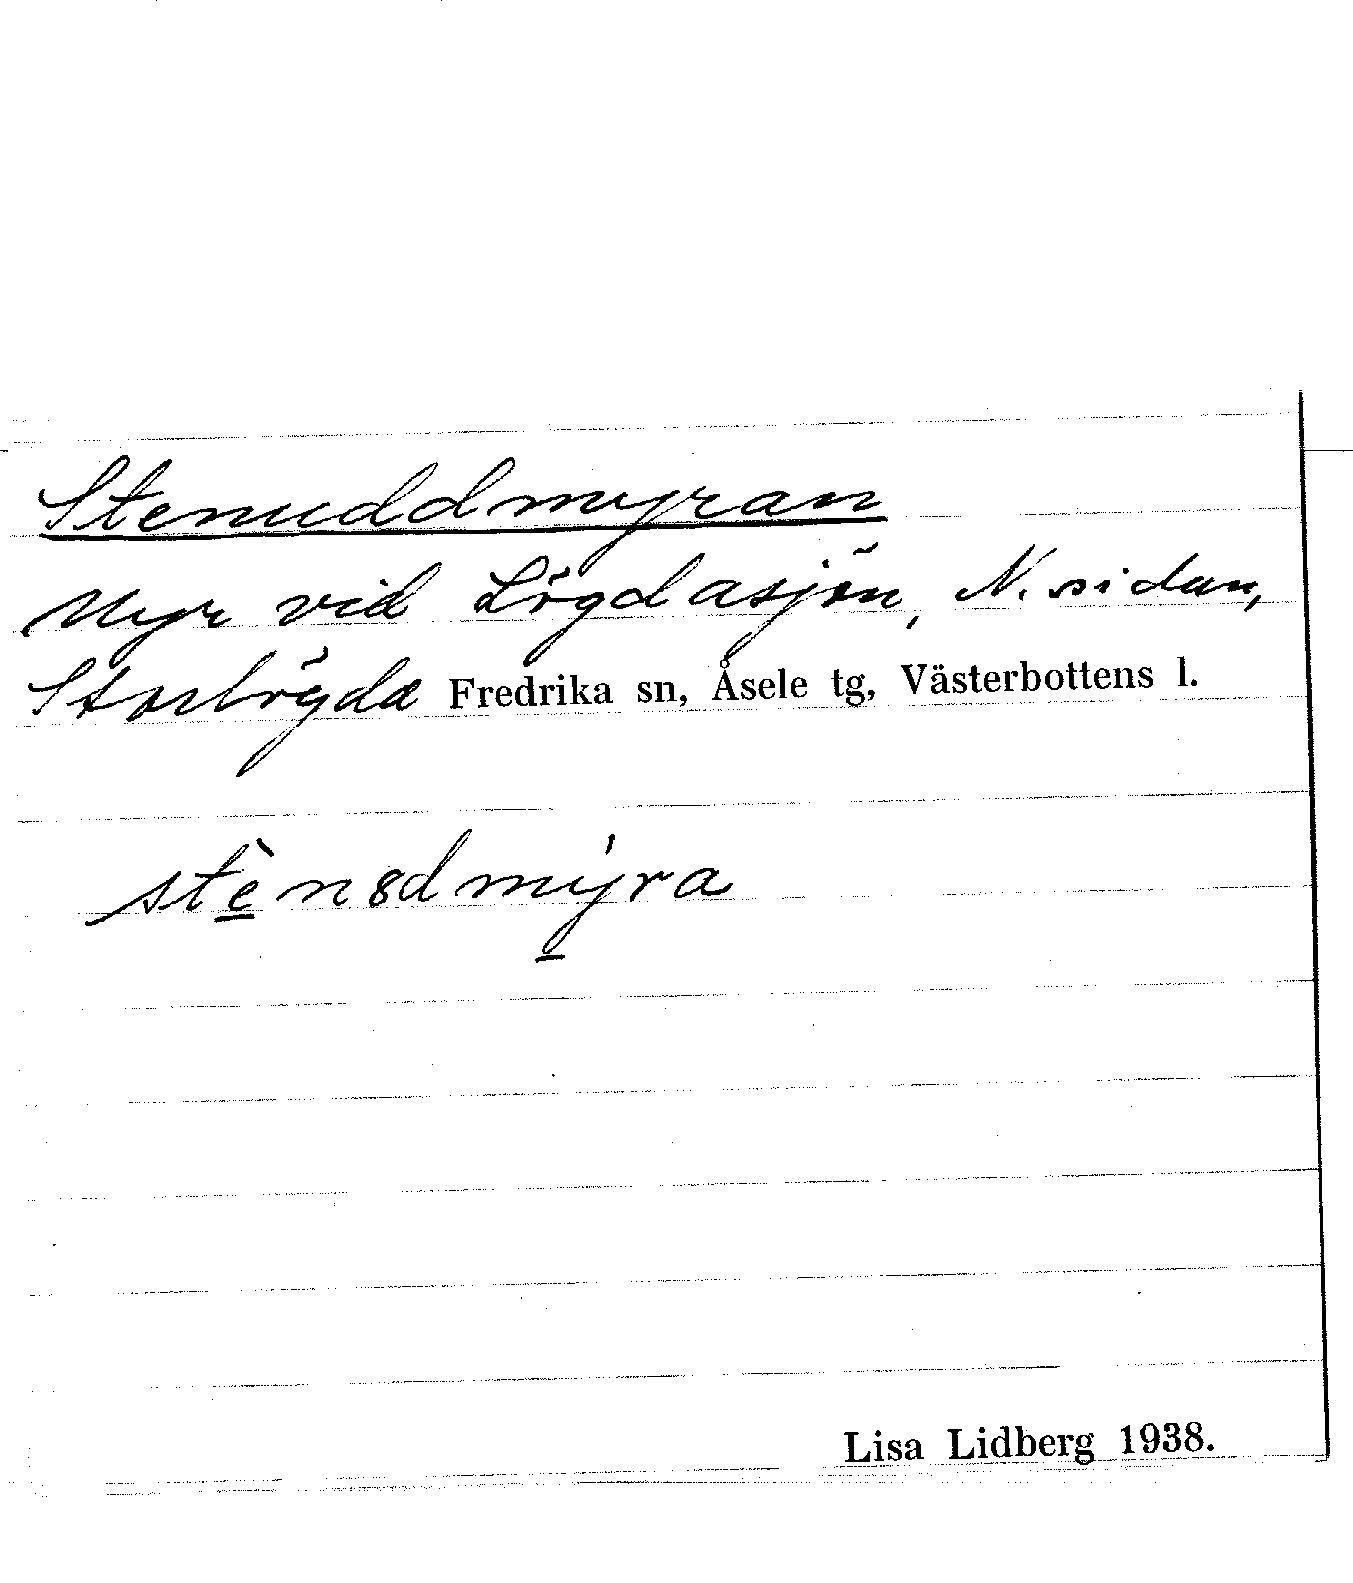 Stenuddmyran
Myr vid Lögdasjön, N. sidan,
Storlögda Fredrika sn, Åsele tg, Västerbottens l.
stè̱n8dmý̱ra
Lisa Lidberg 1938.